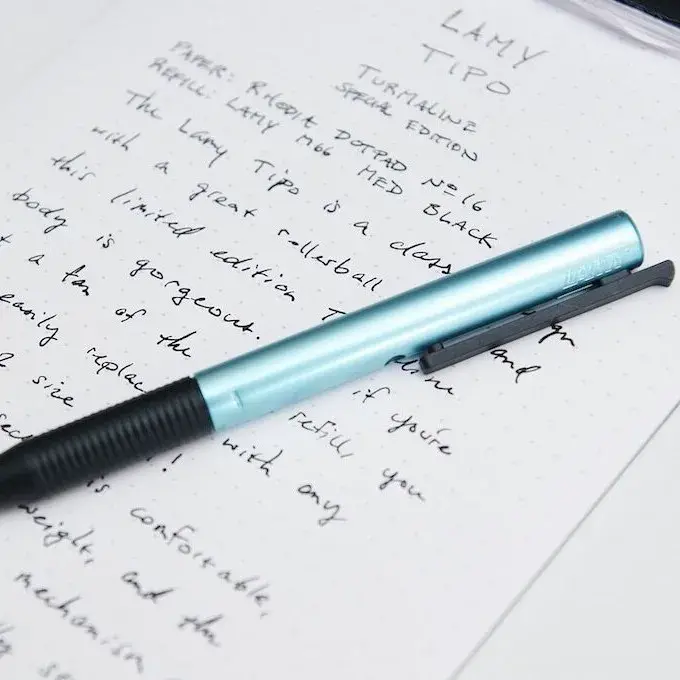 LAMY
TIPO
TURMALINE
SPECIAL EDITION
PAPER: RHODIA DOTPAD Nº16
REFILL: LAMY M66 MED BLACK
The Lamy Tipo is a class
with a great rollerball
this limited edition T
body is gorgeous.
a fan of the
if you're
easily replac
refill, you
size
with any
is comfortable,
weight, and the
mechanism
LAMY
and